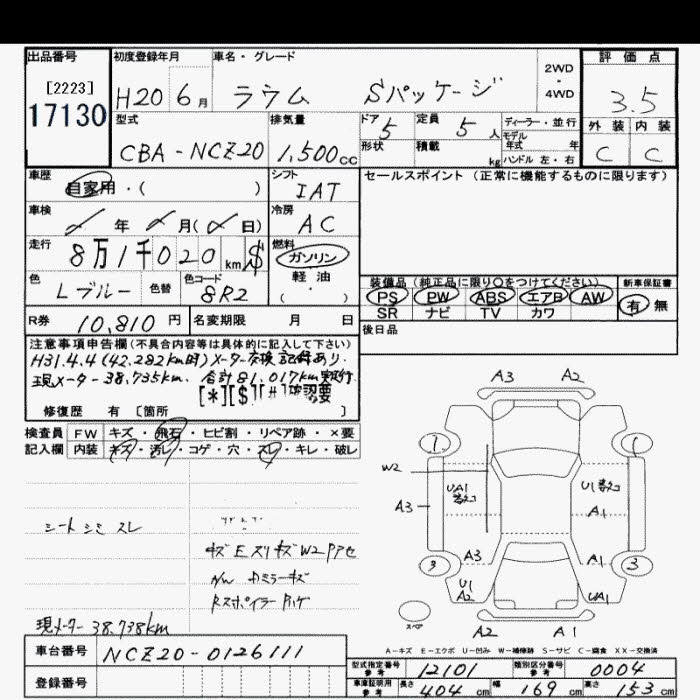 出品番号 初度登録年月 車名・グレード 評価点
[2223]
17130
H20 6月 ラウム Sパッケージ 2WD・4WD 3.5
型式 排気量 ドア 5 定員 5人 ディーラー・並行 外装 内装
CBA-NCZ20 1,500cc 形状 積載 kg モデル年式 年 C C
ハンドル 左・右
車歴 自家用・( ) シフト IAT セールスポイント（正常に機能するものに限ります）
車検 年 月(日) 冷房 AC
走行 8万1千020km $ 燃料 ガソリン
軽油
( ・ )
色 Lブルー 色替 色コード 8R2
装備品（純正品に限り○をつけてください） 新車保証書
PS PW ABS エアB AW 有 無
SR ナビ TV カワ
R券 10,810円 名変期限 月 日 後日品
注意事項申告欄(不具合内容等は具体的に記入して下さい)
H31.4.4(42.282km時)メーター交換記録あり.
現メーター38.735km. 合計81.017km実走行
[*][$][#]確認要
修復歴 有 [箇所 ]
検査員 FW キズ・飛石・ヒビ割・リペア跡・×要
記入欄 内装 キズ・汚レ・コゲ・穴・スレ・キレ・破レ
シートシミ スレ
キズ E スリキズ W2 Pアセ
A/W ドミラーキズ
Rスポイラー
現メーター 38.738km
A3 A2
W2
UA1 U1
A3 A1
A3 A1
3 3
U1 A2 UA1
スペア
A2 A1
A-キズ E-エクボ U-凹み W-補修跡 S-サビ C-腐食 XX-交換済
車台番号 NCZ20-0126111
登録番号
型式指定番号 参考 12101 類別区分番号 参考 0004
車庫証明用 参考 長さ 404cm 幅 169cm 高さ 153cm